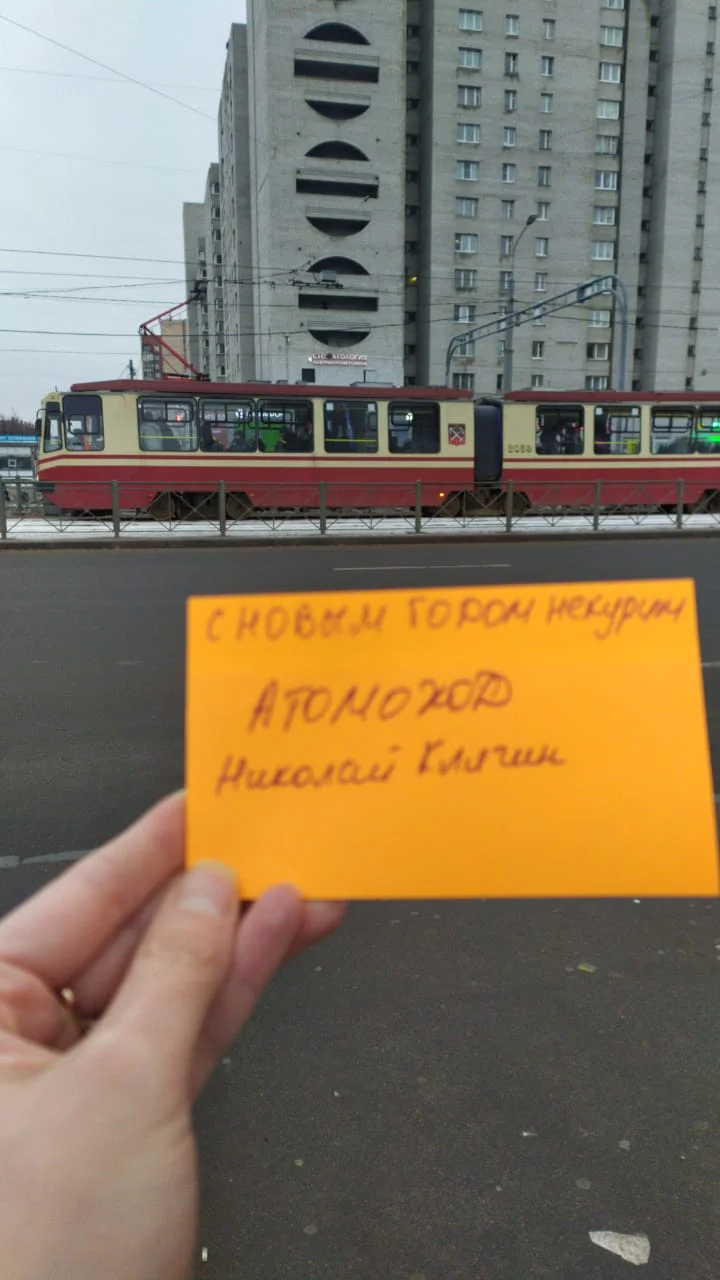 СТОМАТОЛОГИЯ
С НОВЫМ ГОДОМ некурим
АТОМОХОД
Николай Клягин